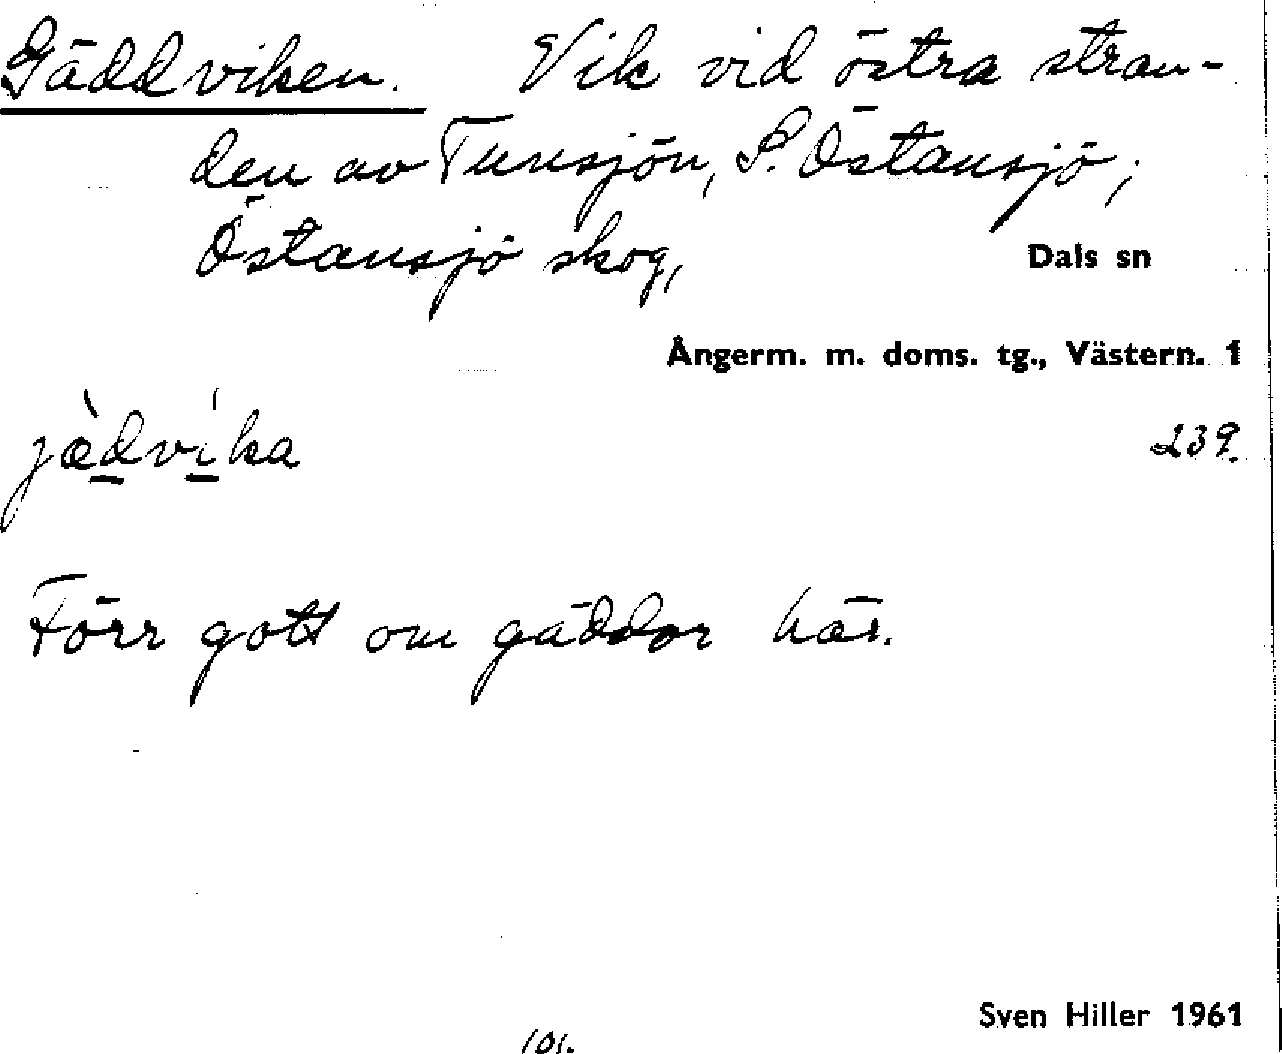 Gäddviken. Vik vid östra stran-
den av Tunsjön, S. Östansjö;
Östansjö skog,
Dals sn
Ångerm. m. doms. tg., Västern. 1
jæ̀dvíka
239.
Förr gott om gäddor här.
Sven Hiller 1961
101.